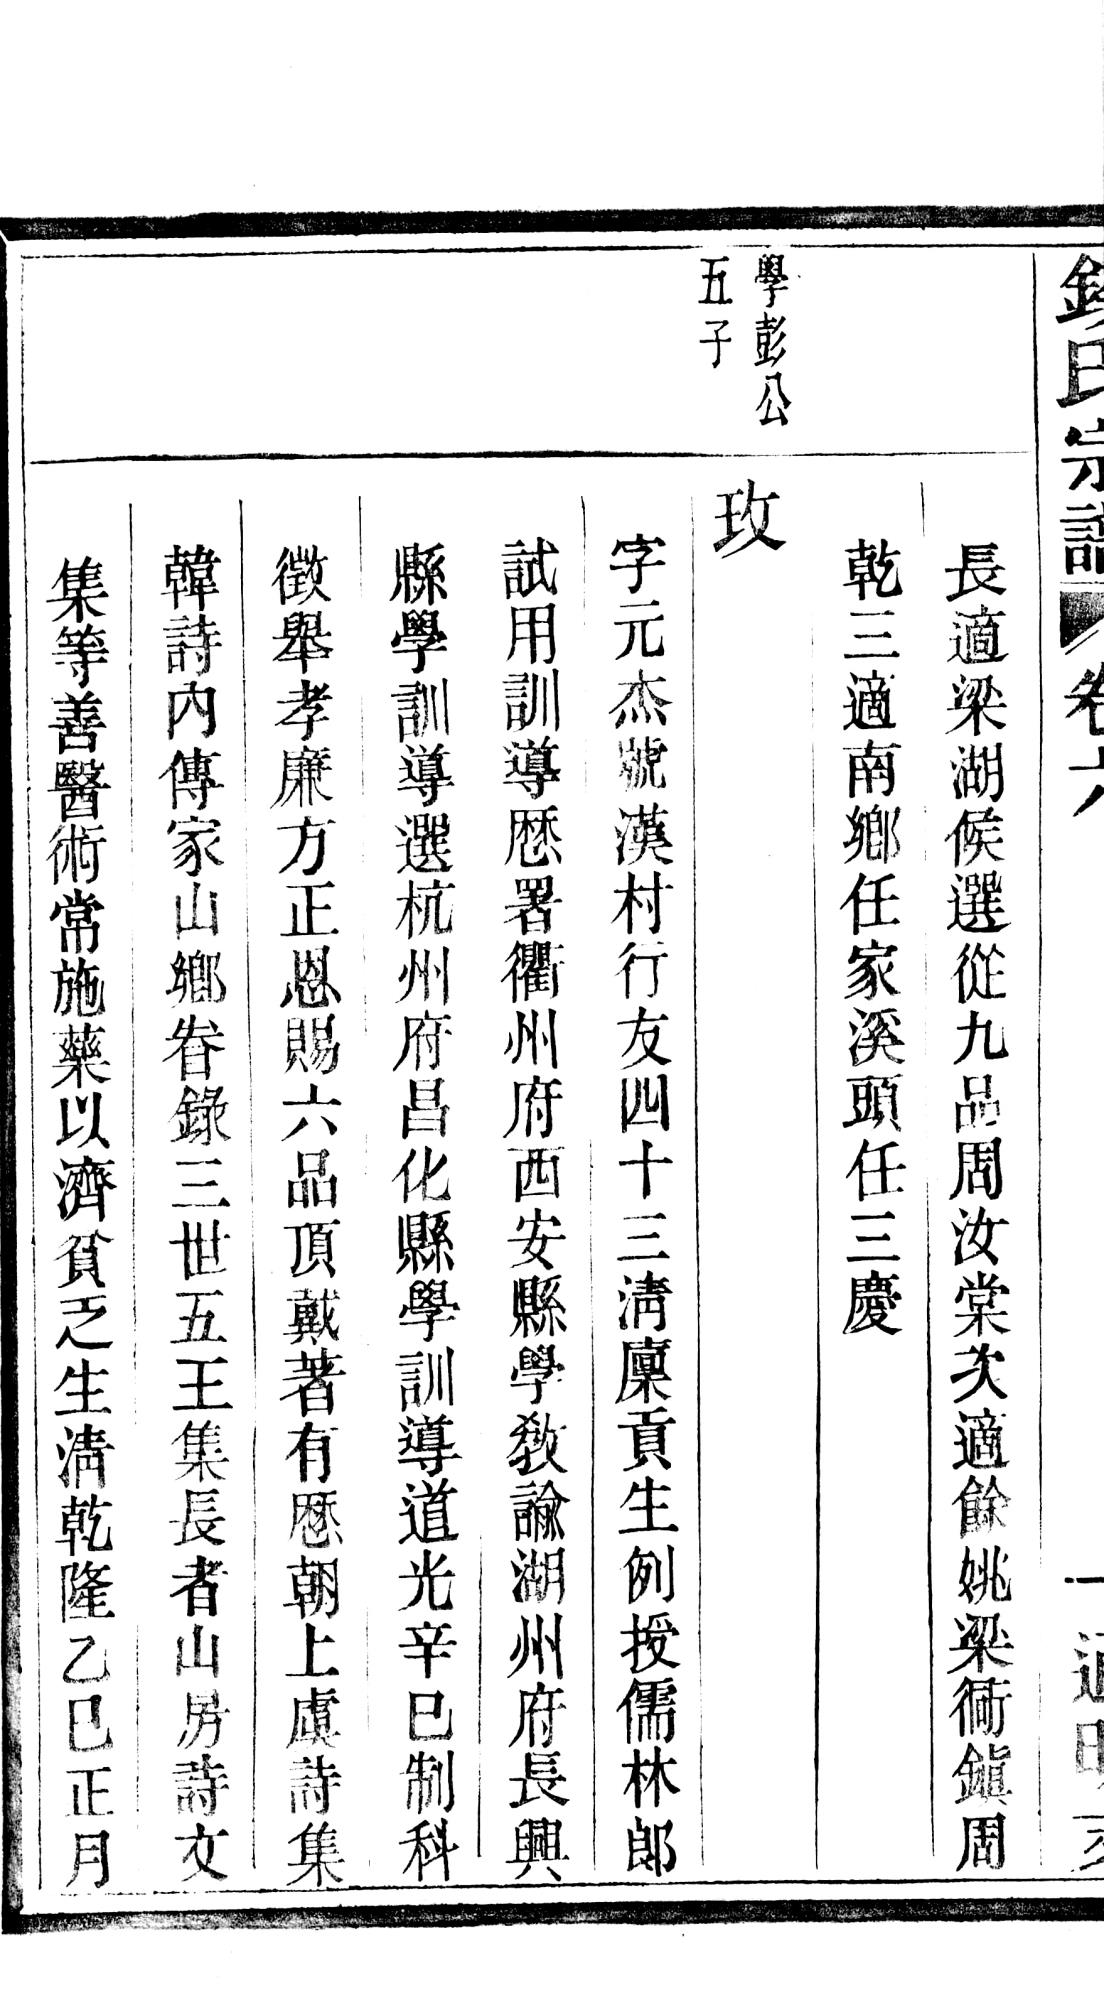 錢氏宗譜 卷六
長適梁湖候選從九品周汝棠次適餘姚梁衕鎭周
乾三適南鄉任家溪頭任三慶
學彭公
五子
玫
字元杰號漢村行友四十三淸廩貢生例授儒林郎
試用訓導歷署衢州府西安縣學敎諭湖州府長興
縣學訓導選杭州府昌化縣學訓導道光辛巳制科
徵舉孝廉方正恩賜六品頂戴著有歷朝上虞詩集
韓詩內傳家山鄉眷錄三世五王集長者山房詩文
集等善醫術常施藥以濟貧乏生淸乾隆乙巳正月